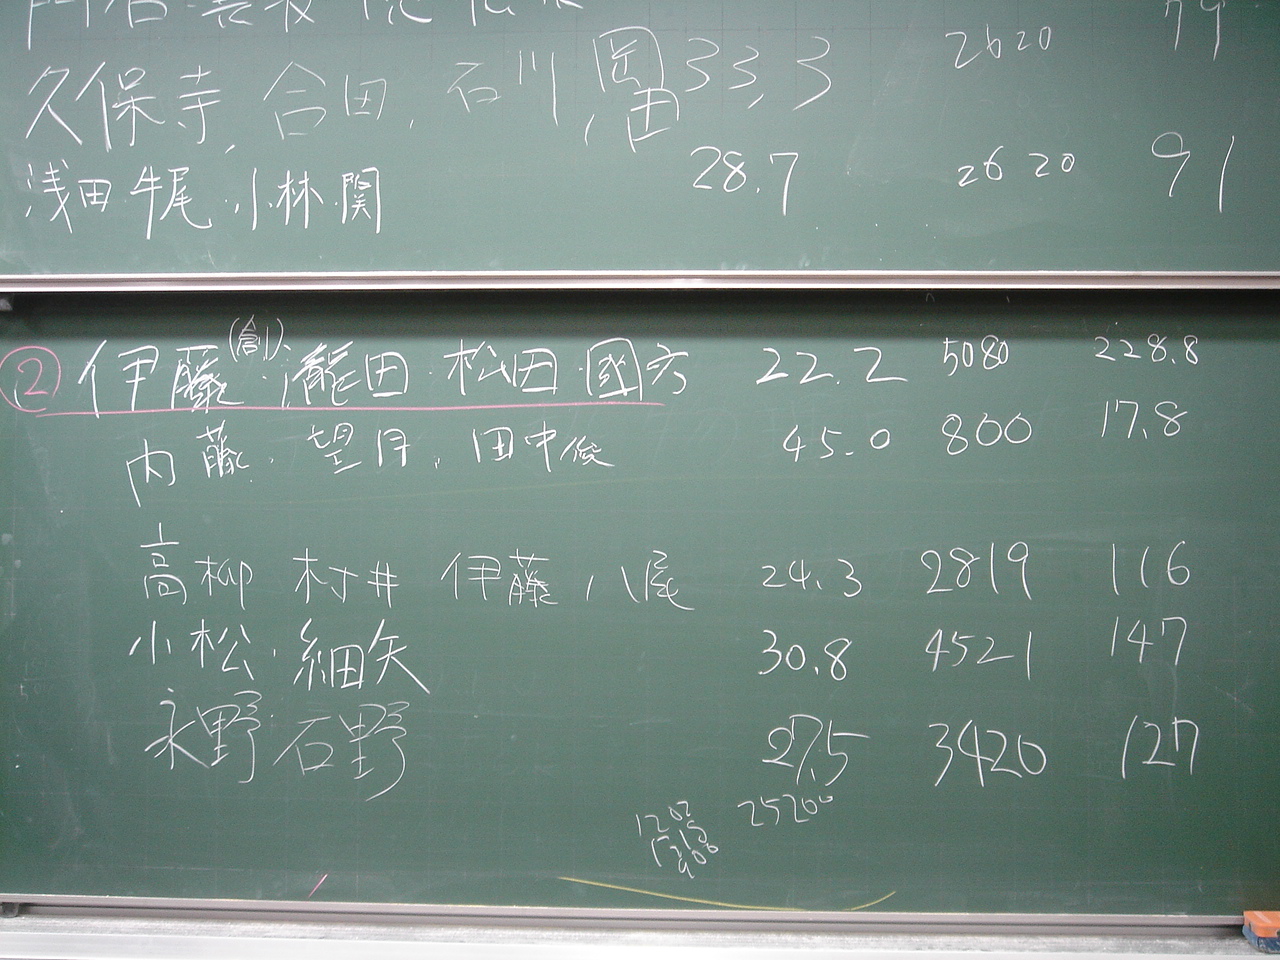 79
久保寺, 合田, 石川, 岡田 33.3 2620
浅田・牛尾・小林・関 28.7 2620 91
② 伊藤(創)・瀧田・松田・國方 22.2 5080 228.8
内藤・望月, 田中俊 45.0 800 17.8
高柳 村井 伊藤, 八尾 24.3 2819 116
小松・細矢 30.8 4521 147
永野・石野 27.5 3420 127
25200